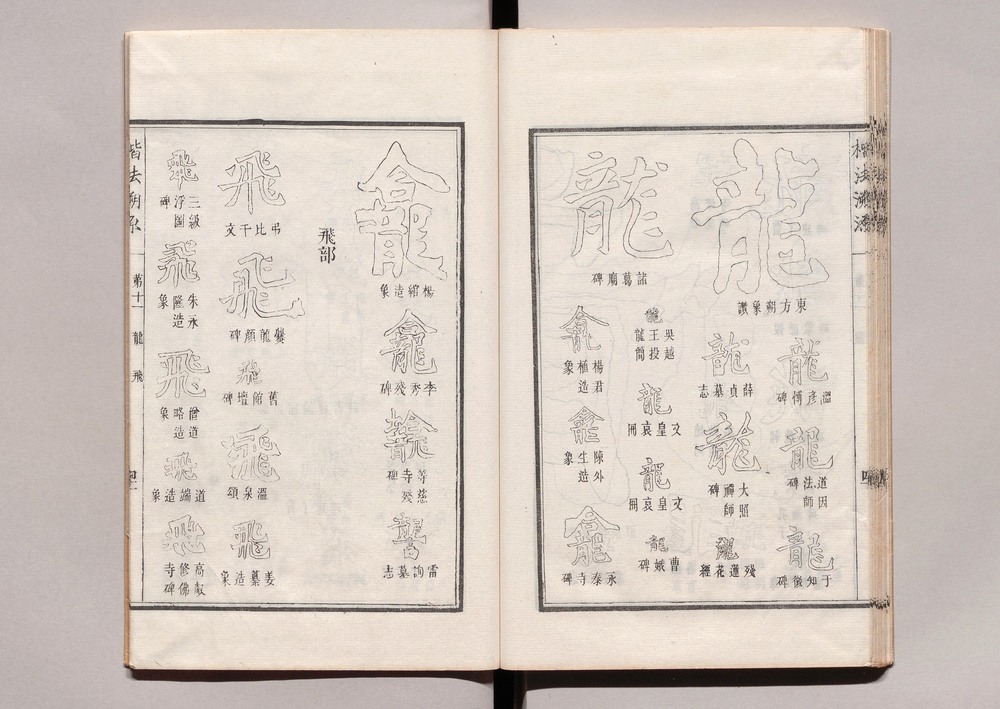 楷法溯源
龍
東方朔象讚
龍
溫彥博碑
龍
道因法師碑
龍
于知微碑
龍
薛貞墓志
龍
大照禪師碑
龍
殘蓮花經
龍
諸葛廟碑
龍
吳越王投龍簡
龍
文皇哀冊
龍
文皇哀冊
龍
曹娥碑
龕
楊君植造象
龕
陳外生造象
龕
永泰寺碑
龕
楊綰造象
龕
李秀殘碑
等慈寺殘碑
雷詢墓志
飛部
飛
弔比干文
飛
爨龍顏碑
飛
舊館壇碑
飛
溫泉頌
飛
姜纂造象
飛
三級浮圖碑
飛
朱永隆造象
飛
僧道略造象
飛
道端造象
飛
高叡修佛寺碑
楷法溯源
第十一
龍
飛